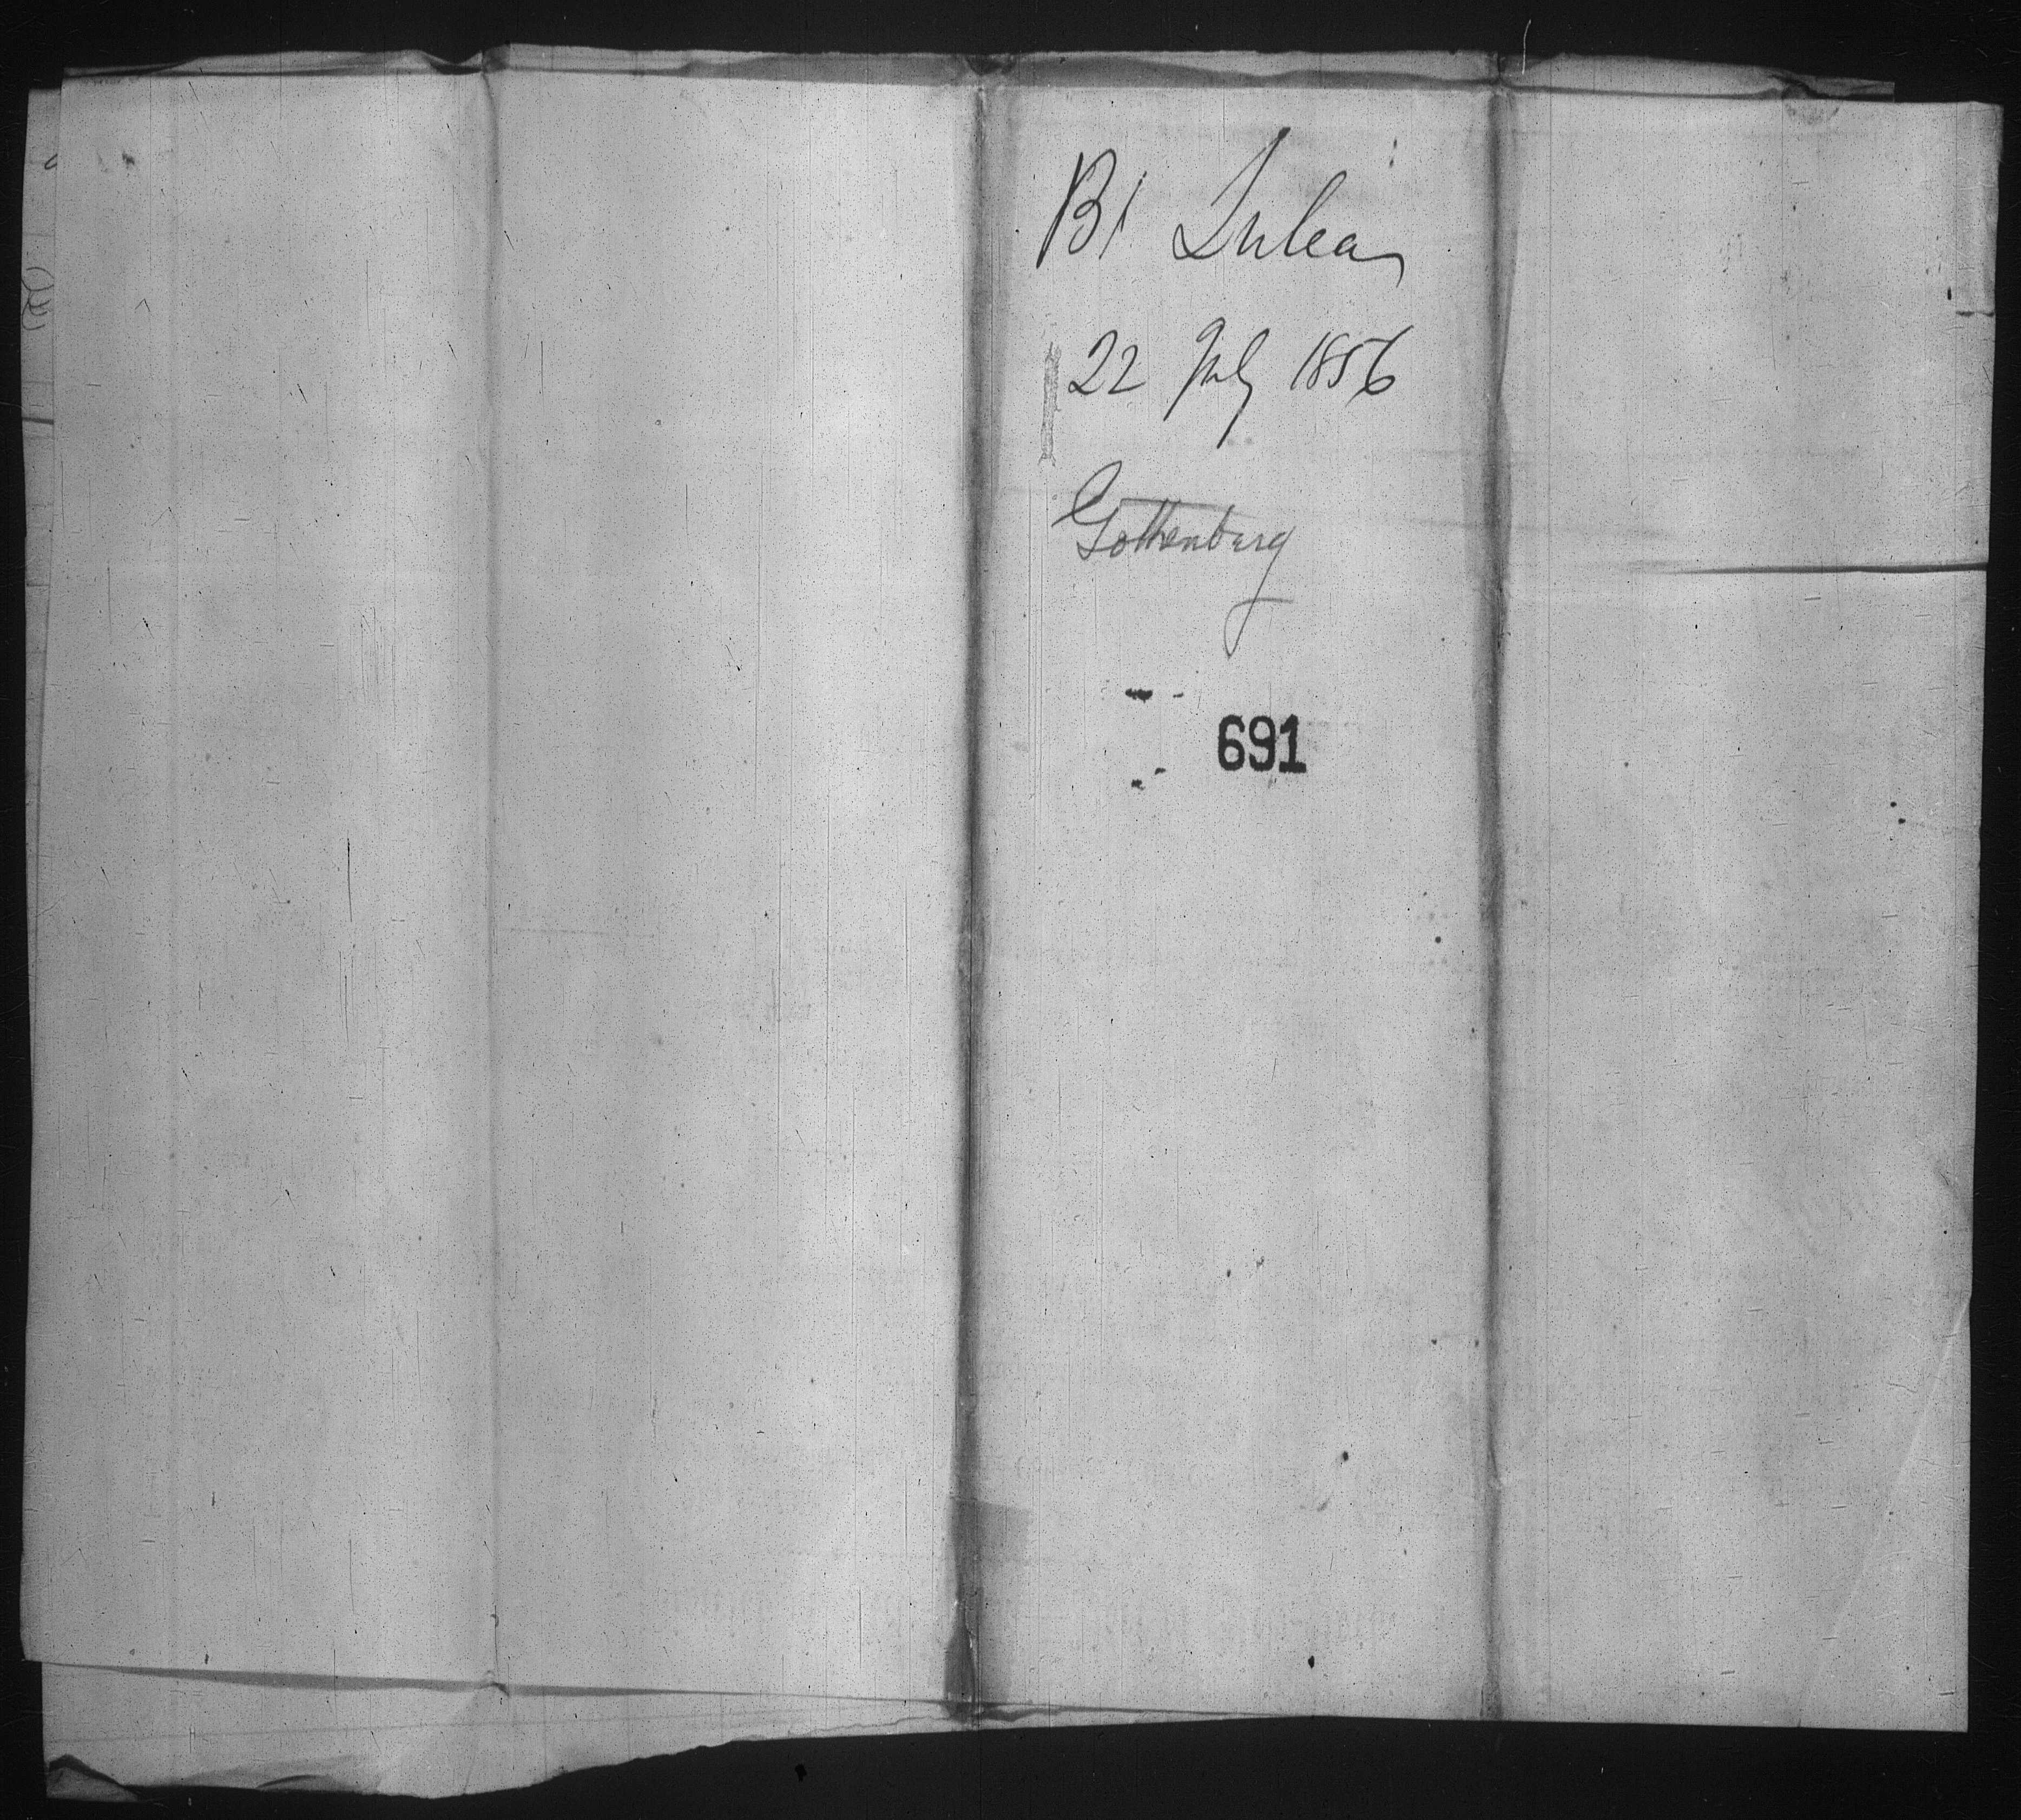 Bk Sulea
22 July 1856
Gottenburg
691